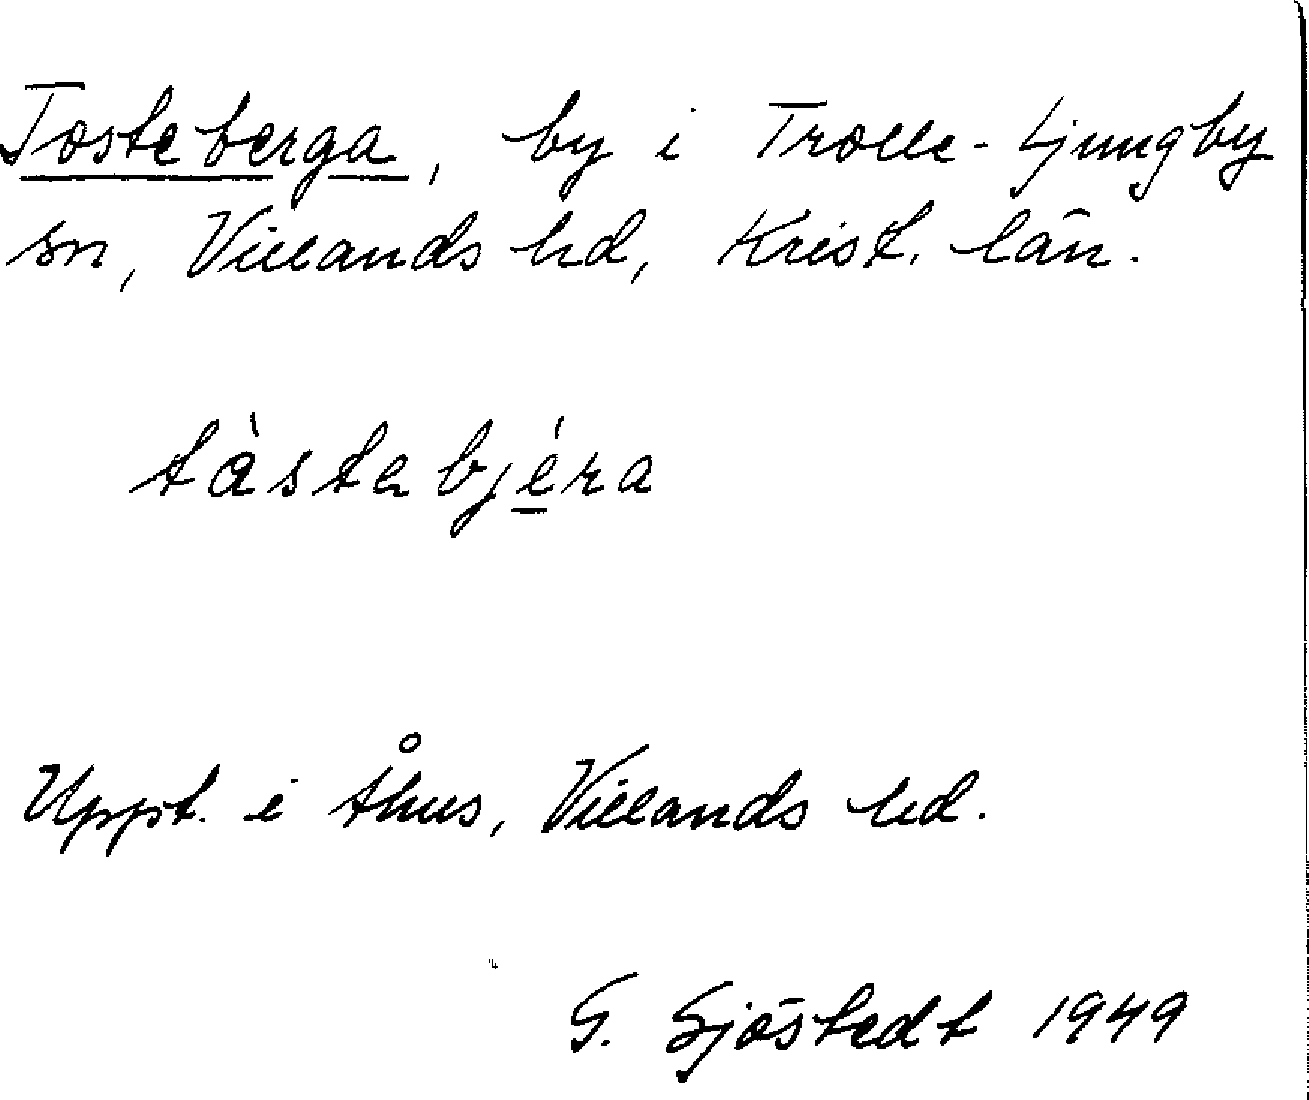 Tosteberga, by i Trolle-Ljungby
sn, Villands hd, Krist. län.
tàstebjéra
Uppt. i Åhus, Villands hd.
G. Sjöstedt 1949